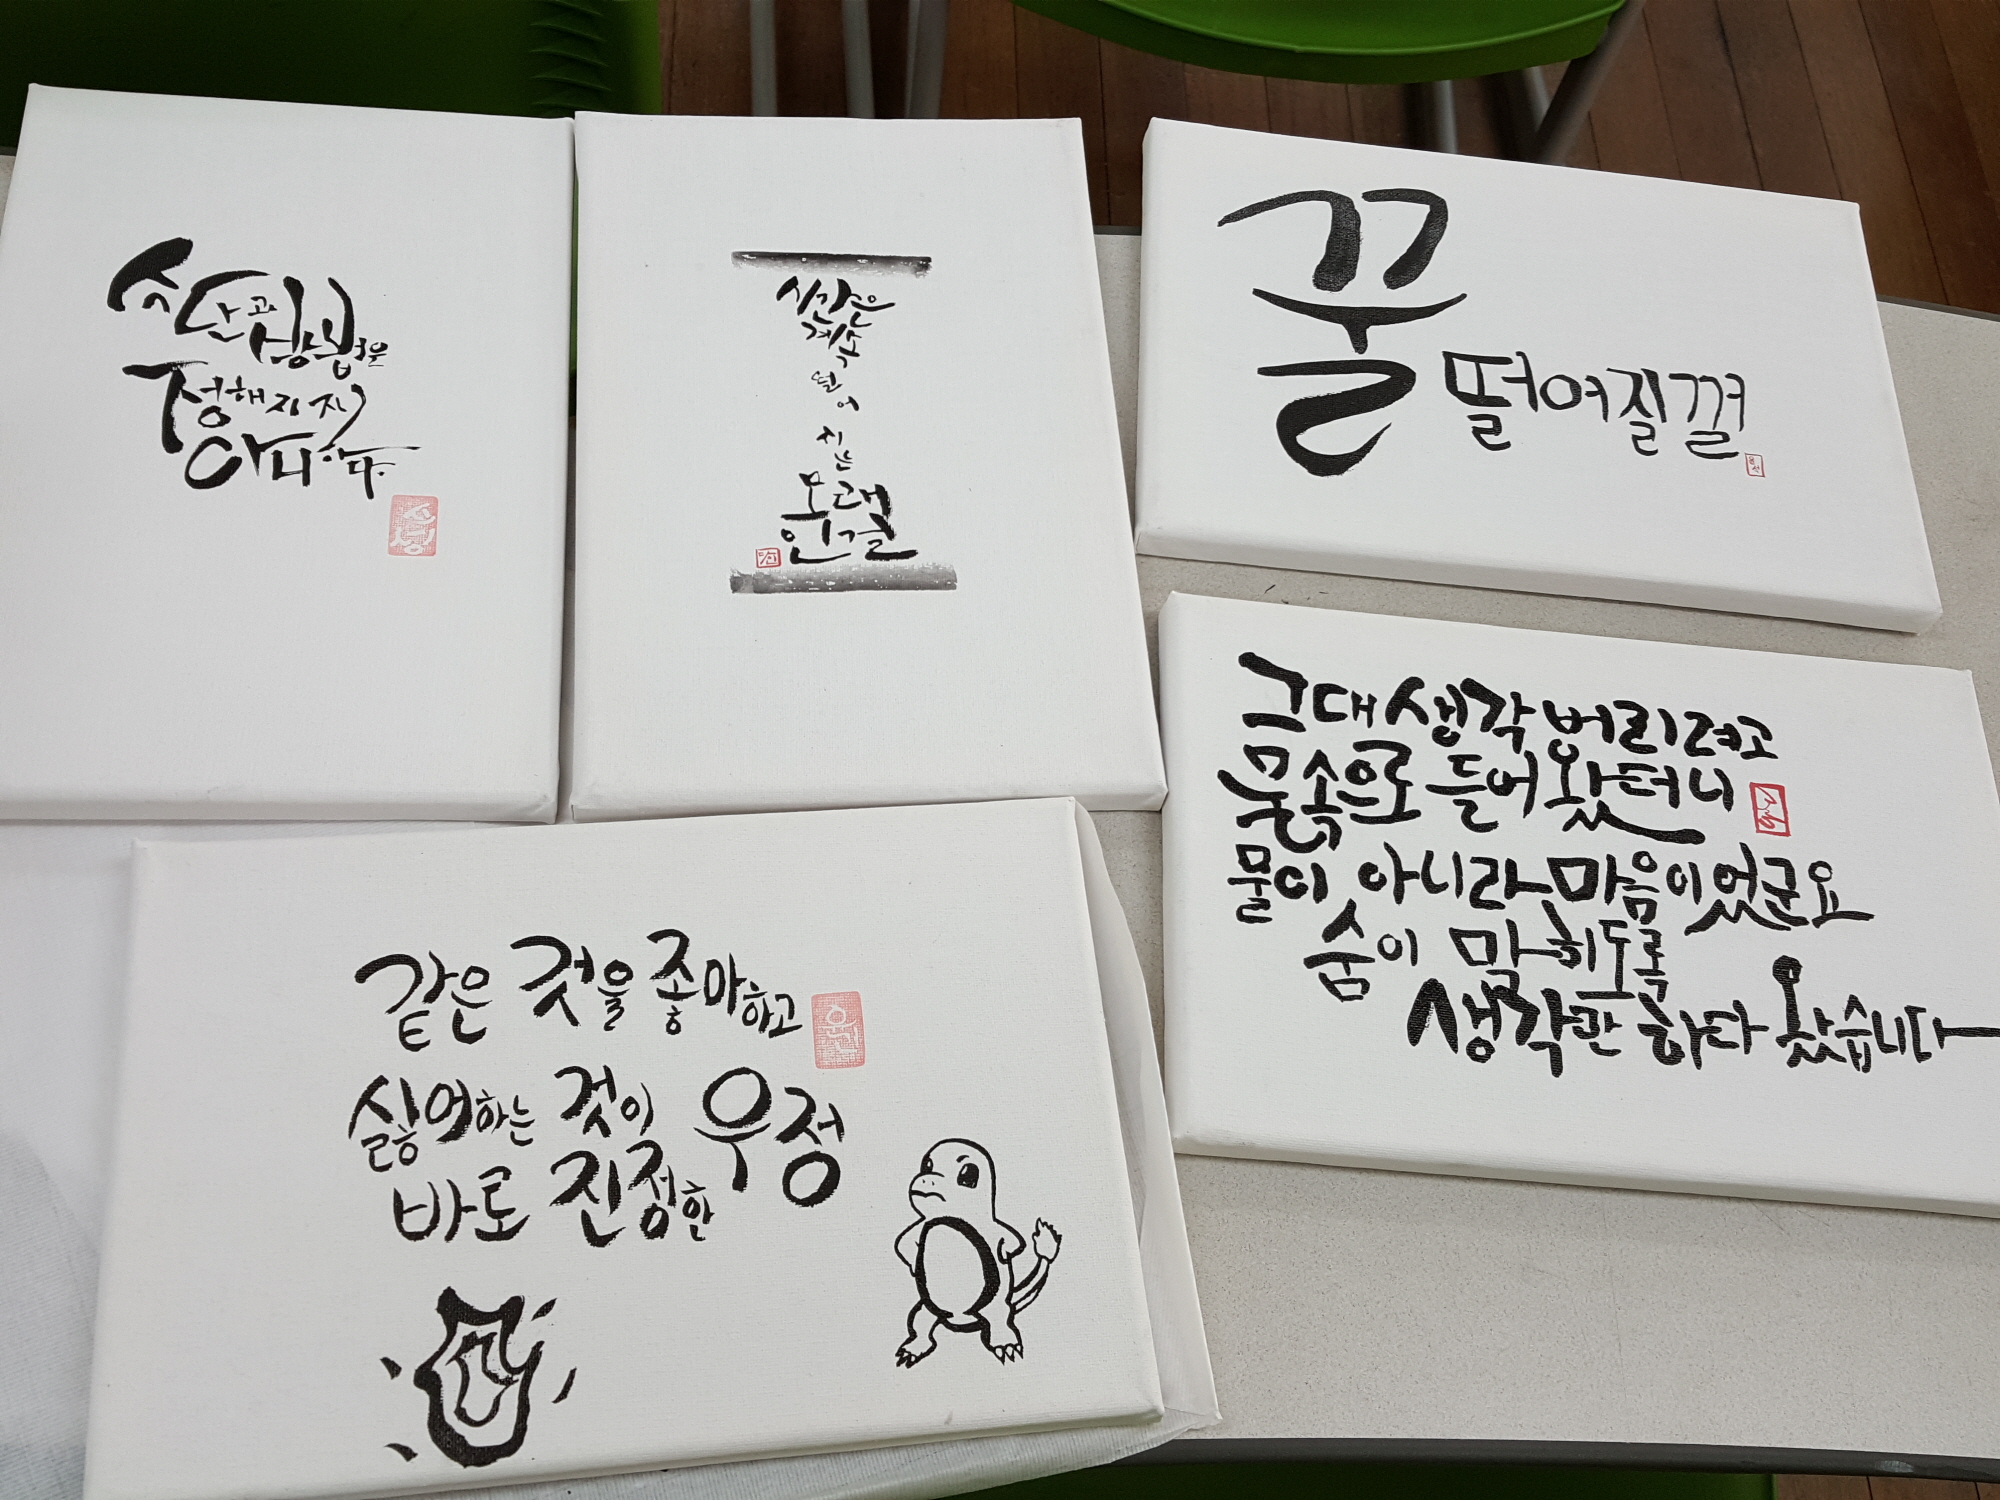 수단과 방법은
정해지지
아니하다.
시간은
계속
떨어
지는
모래
인걸
꿀 떨어질껄
그대 생각 버리려고
물속으로 들어왔더니
물이 아니라 마음이었군요
숨이 막히도록
생각만 하다 왔습니다
같은 것을 좋아하고
싫어하는 것이
바로 진정한 우정